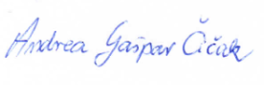 Andrea Gašpar Čičak